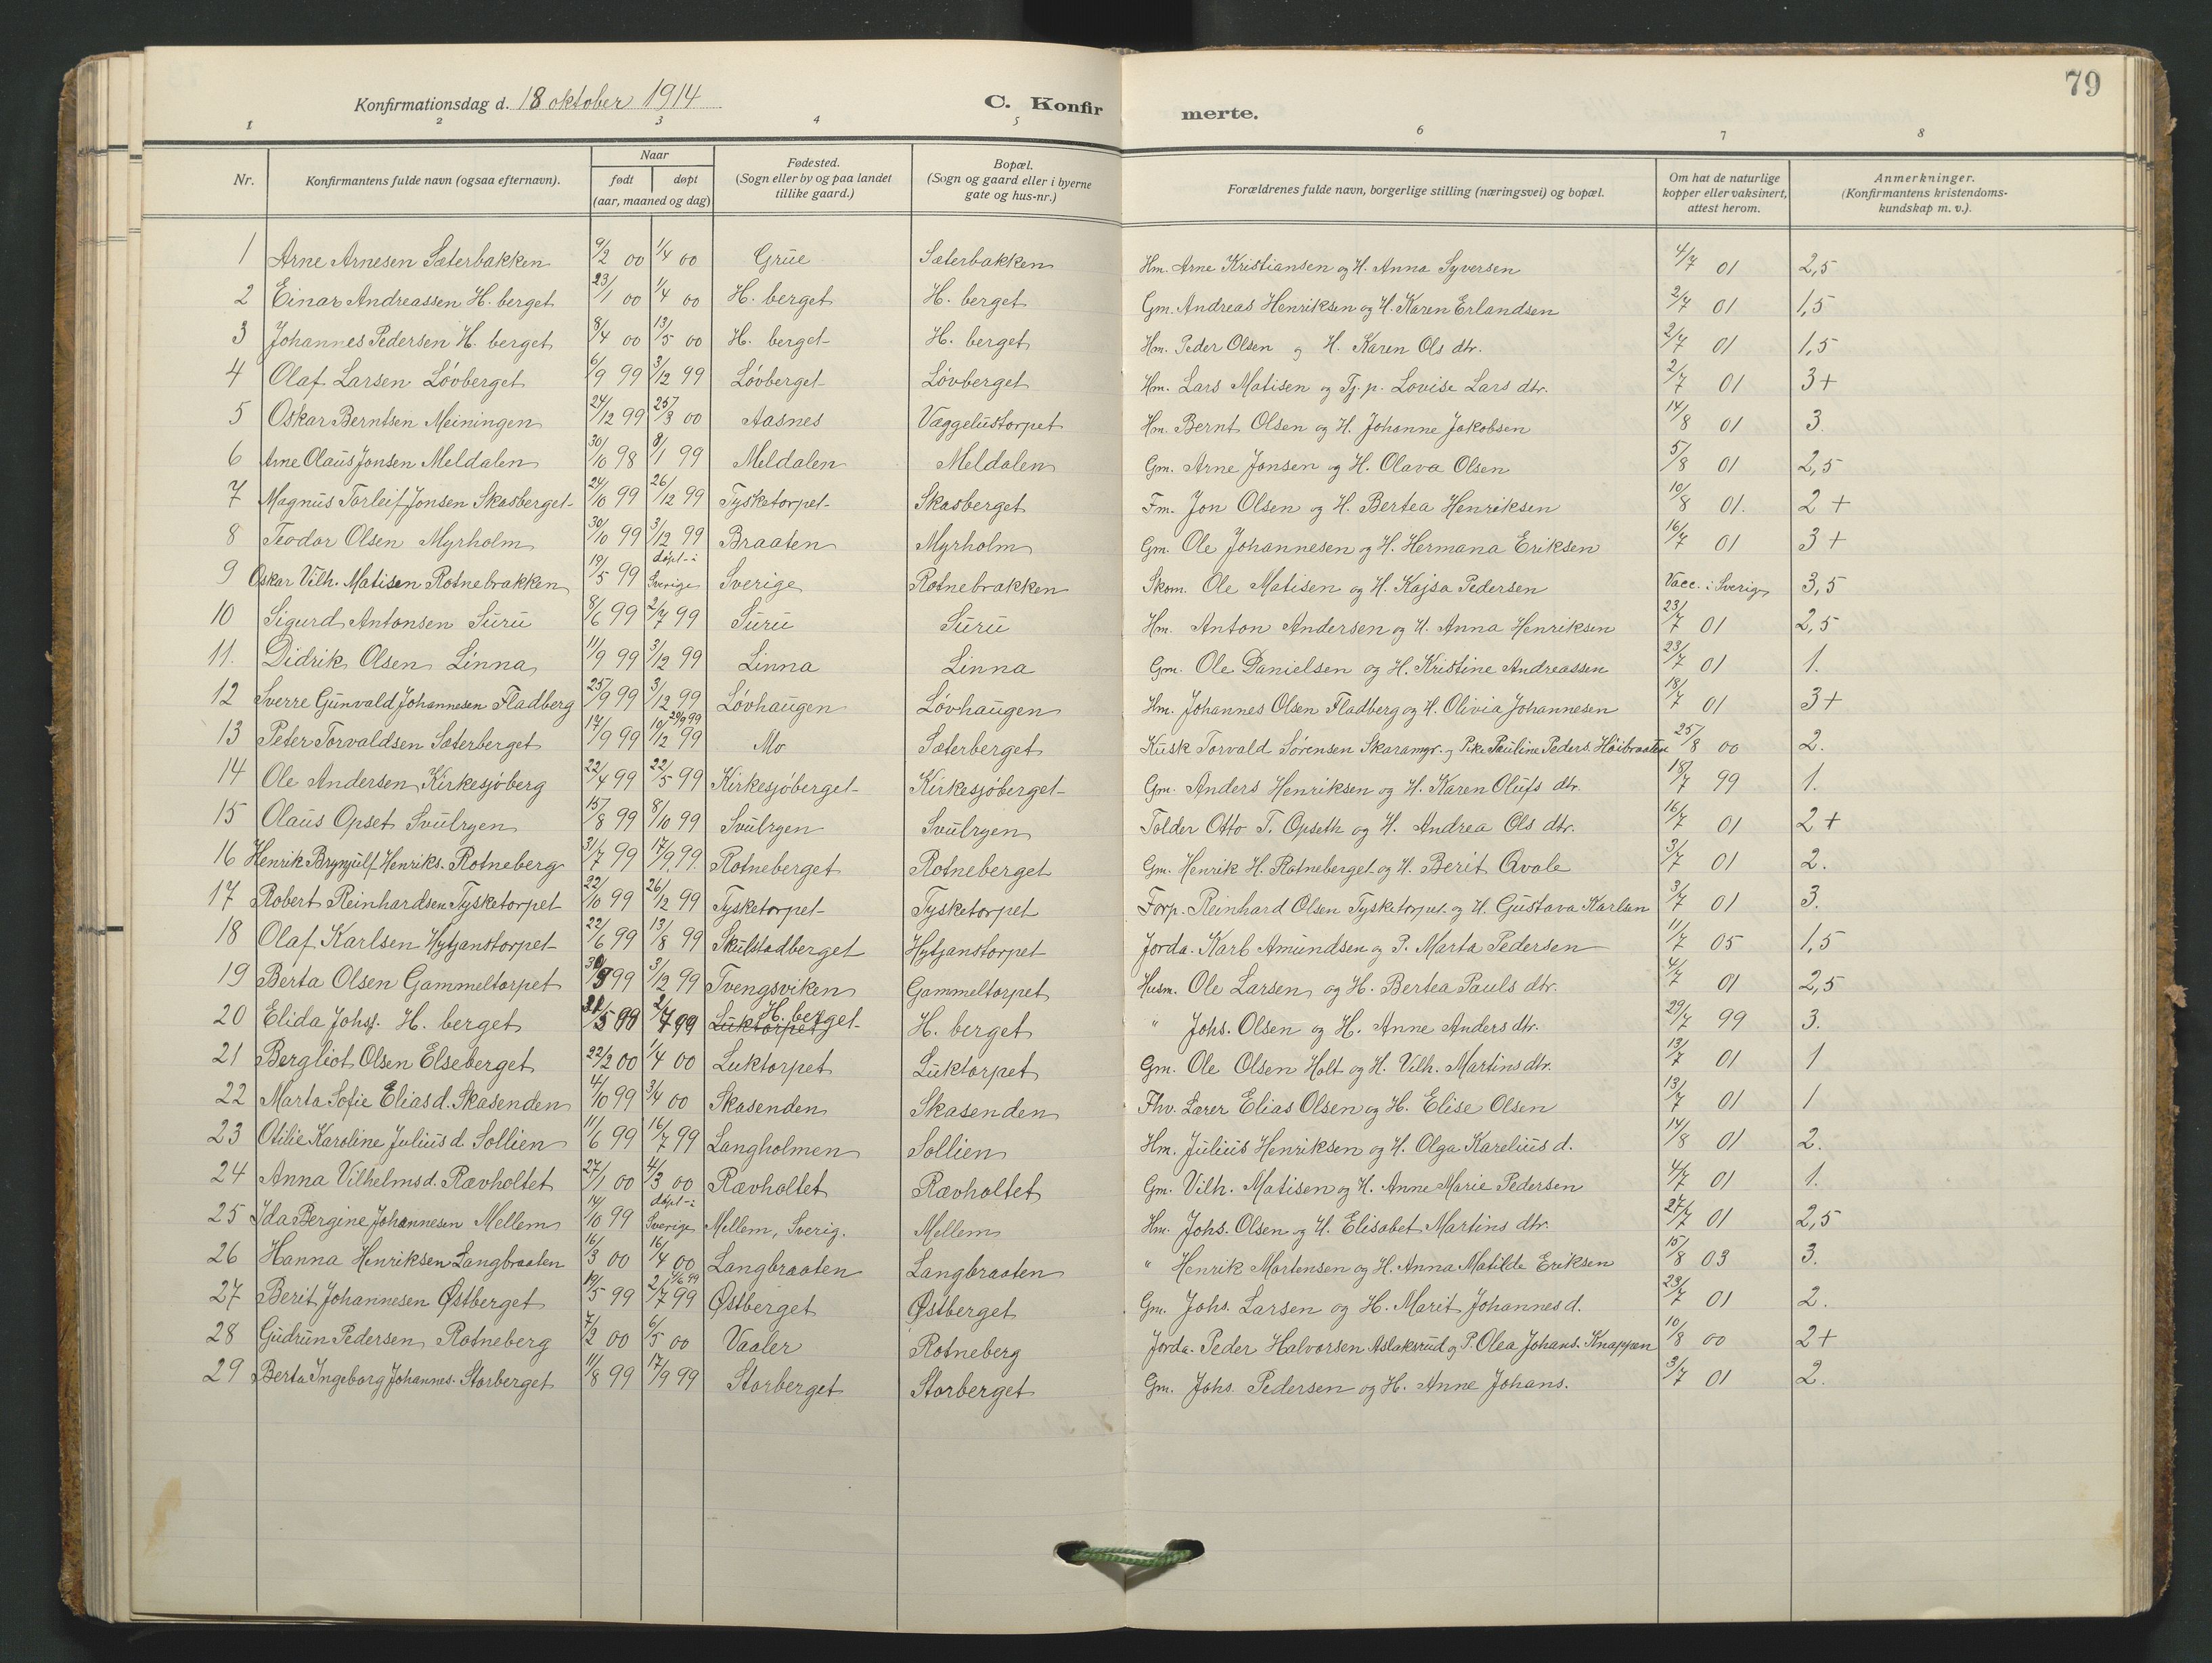 79
Konfirmationsdag d. 18 oktober 1914 C. Konfirmerte.
1 2 3 4 5 6 7 8
Nr. Konfirmantens fulde navn (ogsaa efternavn). Naar født døpt (aar, maaned og dag) Fødested. (Sogn eller by og paa landet tillike gaard.) Bopæl. (Sogn og gaard eller i byerne gate og hus-nr.) Forældrenes fulde navn, borgerlige stilling (næringsvei) og bopæl. Om hat de naturlige kopper eller vaksinert, attest herom. Anmerkninger. (Konfirmantens kristendoms-kundskap m. v.).
1 Arne Arnesen Sæterbakken 9/2 00 1/4 00 Grue Sæterbakken Hm. Arne Kristiansen og H. Anna Syversen 4/7 01 2,5
2 Einar Andreassen H. berget 23/1 00 1/4 00 H. berget H. berget Gm. Andreas Henriksen og H. Karen Erlandsen 2/7 01 1,5
3 Johannes Pedersen H. berget 8/4 00 13/5 00 H. berget H. berget Hm. Peder Olsen og H. Karen Ols dtr. 2/7 01 1,5
4 Olaf Larsen Lövberget 6/9 99 3/12 99 Lövberget Lövberget Hm. Lars Matisen og Tj. p. Lovise Lars dtr. 2/7 01 3+
5 Oskar Berntsen Meiningen 24/12 99 25/3 00 Aasnes Væggelustorpet Hm. Bernt Olsen og H. Johanne Jakobsen 14/8 01 3.
6 Arne Olaus Jonsen Meldalen 30/10 98 8/1 99 Meldalen Meldalen Gm. Arne Jonsen og H. Olava Olsen 5/8 01 2,5
7 Magnus Torleif Jonsen Skasberget 24/10 99 26/12 99 Tysketorpet Skasberget Fm. Jon Olsen og H. Bertea Henriksen 10/8 01. 2 +
8 Teodor Olsen Myrholm 30/10 99 3/12 99 Braaten Myrholm Gm. Ole Johannesen og H. Hermana Eriksen 16/7 01 3 +
9 Oskar Vilh. Matisen Rotnebrakken 19/5 99 döpt i Sverige Sverige Rotnebrakken Skom. Ole Matisen og H. Kajsa Pedersen Vacc. i Sverige 3,5
10 Sigurd Antonsen Suru 8/6 99 2/7 99 Suru Suru Hm. Anton Andersen og H. Anna Henriksen 23/7 01 2,5
11. Didrik Olsen Linna 11/9 99 3/12 99 Linna Linna Gm. Ole Danielsen og H. Kristine Andreassen 23/7 01 1.
12 Sverre Gunvald Johannesen Fladberg 25/9 99 3/12 99 Lövhaugen Lövhaugen Hm. Johannes Olsen Fladberg og H. Olivia Johannesen 18/7 01 3+
13 Peter Torvaldsen Sæterberget 12/9 99 10/12 99 29/9 99 Mo Sæterberget Kusk Torvald Sörensen Skaramyr. og Pike Pauline Peders. Höibraaten 25/8 00 2.
14 Ole Andersen Kirkesjöberg 22/4 99 22/5 99 Kirkesjöberget Kirkesjöberget Gm. Anders Henriksen og H. Karen Olufs dtr. 18/7 99 1.
15 Olaus Opset Svulryen 15/8 99 8/10 99 Svulryen Svulryen Tolder Otto T. Opseth og H. Andrea Ols dtr. 16/7 01 2+
16 Henrik Brynjulf Henriks. Rotneberg 31/7 99 17/9 99. Rotneberget Rotneberget Gm. Henrik H. Rotneberget og H. Berit Qvale 3/7 01 2.
17 Robert Reinhardsen Tysketorpet 22/10 99 26/12 99 Tysketorpet Tysketorpet Forp. Reinhard Olsen Tysketorpet og H. Gustava Karlsen 3/7 01 3.
18 Olaf Karlsen Hytjanstorpet 22/6 99 13/8 99 Skulstadberget Hytjanstorpet Jorda. Karl Amundsen og P. Marta Pedersen 11/7 05 1,5
19 Berta Olsen Gammeltorpet 30/9 99 3/12 99 Tvengsviken Gammeltorpet Husm. Ole Larsen og H. Bertea Pauls dtr. 4/7 01 2,5
20 Elida Johsf. H. berget 31/5 99 2/7 99 Luktorpet H. berget H. berget " Johs. Olsen og H. Anne Anders dtr. 29/7 99 3.
21 Bergliot Olsen Elseberget 22/2 00 1/4 00 Luktorpet Luktorpet Gm. Ole Olsen Holt og H. Vilh. Martinsdtr. 13/7 01 1
22 Marta Sofie Elias d. Skasenden 4/10 99 3/4 00 Skasenden Skasenden Fhv. Lærer Elias Olsen og H. Elise Olsen 13/7 01 1
23 Otilie Karoline Julius d. Sollien 11/6 99 16/7 99 Langholmen Sollien Hm. Julius Henriksen og H. Olga Karelius d. 14/8 01 2.
24 Anna Vilhelms d. Rævholtet 27/1 00 4/3 00 Rævholtet Rævholtet Gm. Vilh. Matisen og H. Anne Marie Pedersen 4/7 01 1.
25 Ida Bergine Johannesen Mellem 14/10 99 döpt i Sverige Mellem, Sverig. Mellem Hm. Johs. Olsen og H. Elisabet Martins dtr. 27/7 01 2,5
26 Hanna Henriksen Langbraaten 16/3 00 16/4 00 Langbraaten Langbraaten " Henrik Mortensen og H. Anna Matilde Eriksen 15/8 03 3.
27 Berit Johannesen Østberget 19/5 99 2/7 99 Østberget Østberget Gm. Johs. Larsen og H. Marit Johannes d. 23/7 01 2.
28 Gudrun Pedersen Rotneberg 7/2 00 6/5 00 Vaaler Rotneberg Jorda. Peder Halvorsen Aslaksrud og P. Olea Johans. Knappen 10/8 00 2+
29 Berta Ingeborg Johannes. Storberget 11/8 99 17/9 99 Storberget Storberget Gm. Johs. Pedersen og H. Anne Johans. 3/7 01 2.